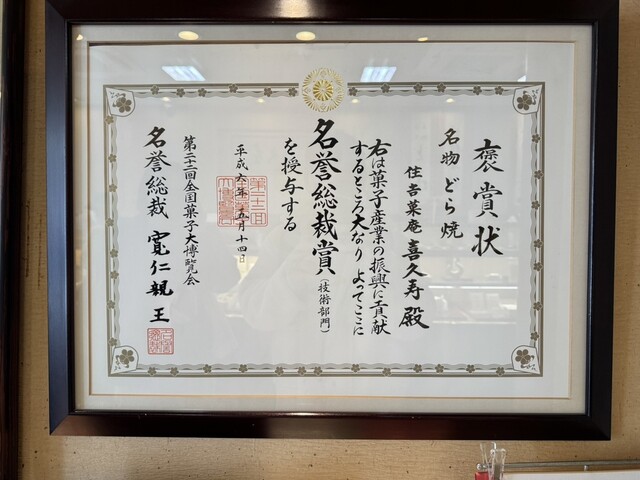 褒賞状
名物 どら焼
住吉菓庵 喜久寿 殿
右は菓子産業の振興に貢献
するところ大なり よってここに
名誉総裁賞(技術部門)
を授与する
平成六年 五月十四日
第二十二回全国菓子大博覧会
名誉総裁 寛仁親王